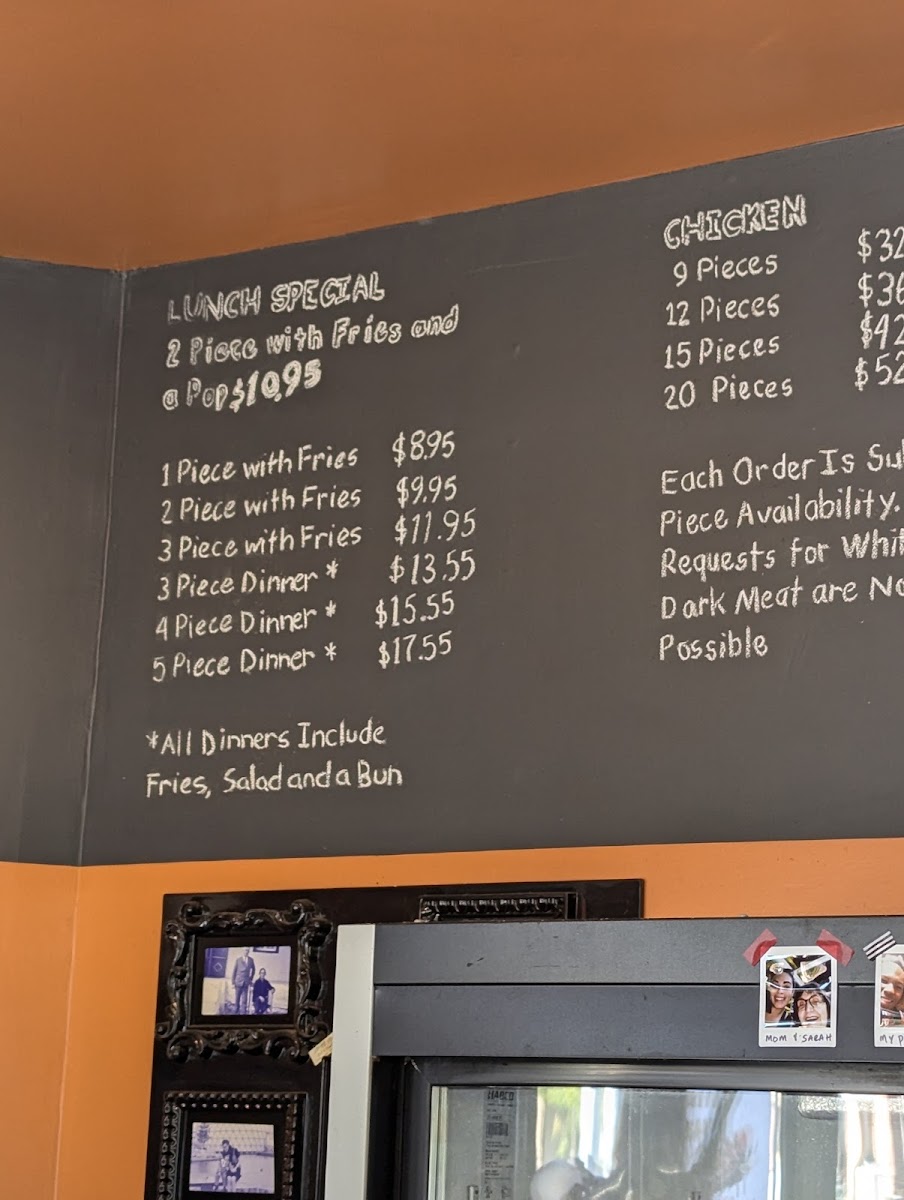 LUNCH SPECIAL
2 Piece with Fries and
a Pop $10.95
1 Piece with Fries $8.95
2 Piece with Fries $9.95
3 Piece with Fries $11.95
3 Piece Dinner * $13.55
4 Piece Dinner * $15.55
5 Piece Dinner * $17.55
*All Dinners Include
Fries, Salad and a Bun
CHICKEN
9 Pieces $32
12 Pieces $36
15 Pieces $42
20 Pieces $52
Each Order Is Su
Piece Availability.
Requests for Whit
Dark Meat are No
Possible
MOM & SARAH
MY P